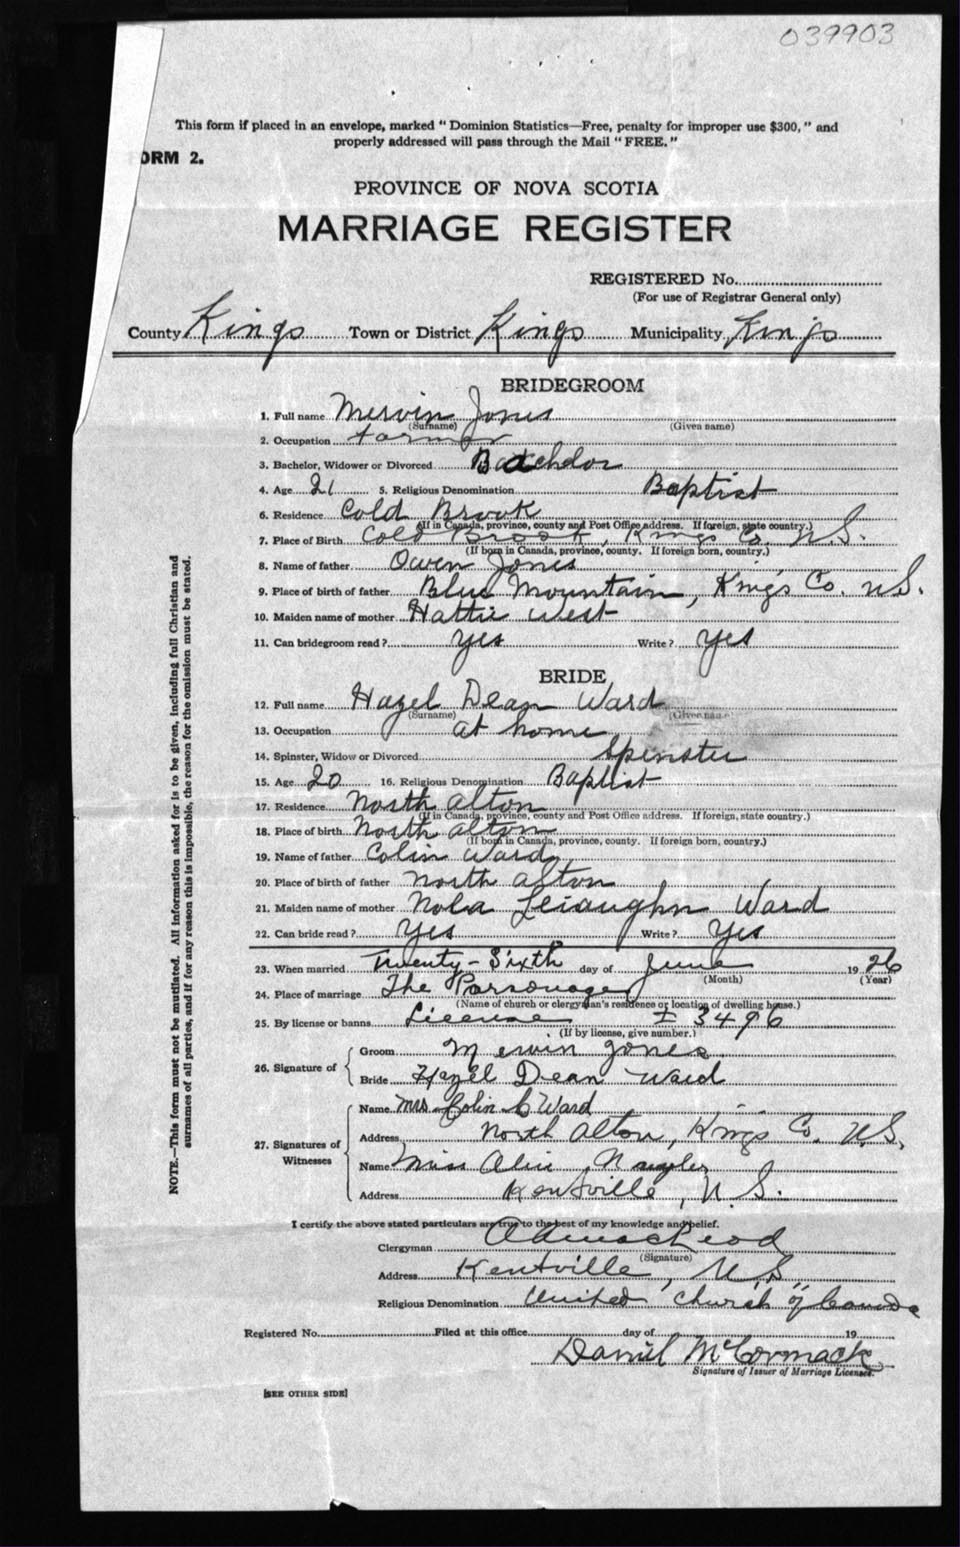 039903
This form if placed in an envelope, marked "Dominion Statistics—Free, penalty for improper use $300," and
properly addressed will pass through the Mail "FREE."
ORM 2.
PROVINCE OF NOVA SCOTIA
MARRIAGE REGISTER
REGISTERED No.
(For use of Registrar General only)
County Kings Town or District Kings Municipality Kings
BRIDEGROOM
1. Full name Mervin Jones
(Surname) (Given name)
2. Occupation Farmer
3. Bachelor, Widower or Divorced Batchelor
4. Age 21 5. Religious Denomination Baptist
6. Residence Cold Brook
(If in Canada, province, county and Post Office address. If foreign, state country.)
7. Place of Birth Cold Brook, Kings Co. N.S.
(If born in Canada, province, county. If foreign born, country.)
8. Name of father Owen Jones
9. Place of birth of father Blue Mountain, King's Co. N.S.
10. Maiden name of mother Hattie West
11. Can bridegroom read? yes Write? yes
BRIDE
12. Full name Hazel Dean Ward
(Surname) (Given name)
13. Occupation at home
14. Spinster, Widow or Divorced Spinster
15. Age 20 16. Religious Denomination Baptist
17. Residence North Alton
(If in Canada, province, county and Post Office address. If foreign, state country.)
18. Place of birth North Alton
(If born in Canada, province, county. If foreign born, country.)
19. Name of father Colin Ward
20. Place of birth of father North Alton
21. Maiden name of mother Nola Ward
22. Can bride read? Yes Write? Yes
23. When married Twenty-Sixth day of June 1926
(Month) (Year)
24. Place of marriage The Parsonage
(Name of church or clergyman's residence or location of dwelling house.)
25. By license or banns License I 3496
(If by license, give number.)
26. Signature of
Groom Mervin Jones
Bride Hazel Dean Ward
27. Signatures of Witnesses
Name Mrs. Colin C Ward
Address North Alton, King's Co. N.S.
Name Miss Naugler
Address Kentville, N.S.
I certify the above stated particulars are true to the best of my knowledge and belief.
Clergyman
(Signature)
Address Kentville, N.S.
Religious Denomination United Church of Canada
Registered No. Filed at this office day of 19
Daniel McCormack
Signature of Issuer of Marriage Licenses.
[SEE OTHER SIDE]
NOTE.—This form must not be mutilated. All information asked for is to be given, including full Christian and
surnames of all parties, and if for any reason this is impossible, the reason for the omission must be stated.